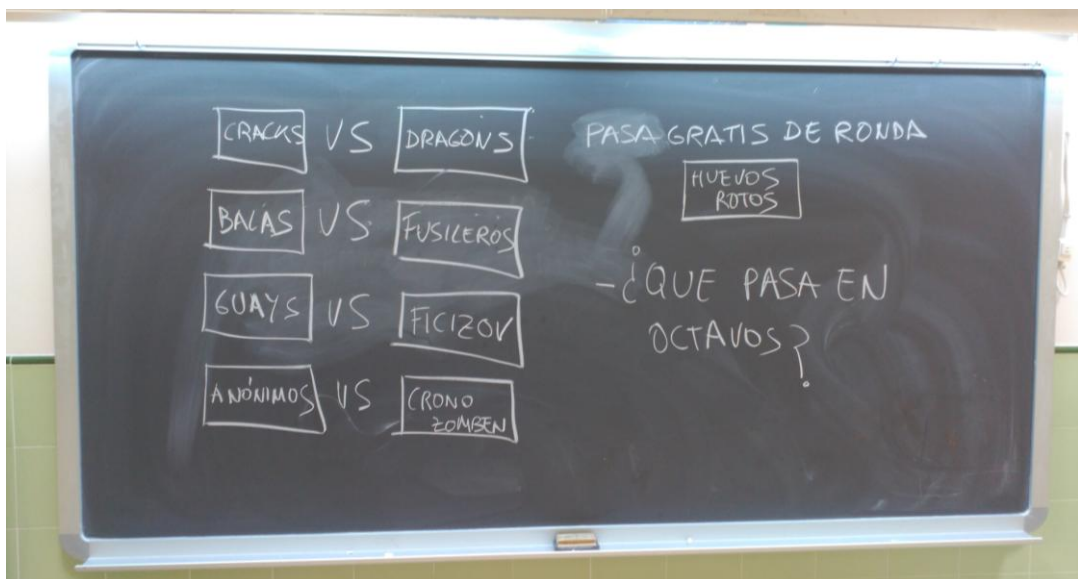 CRACKS VS DRAGONS
BALAS VS FUSILEROS
GUAYS VS FICIZOV
ANÓNIMOS VS CRONO
ZOMBEN
PASA GRATIS DE RONDA
HUEVOS
ROTOS
-¿QUE PASA EN
OCTAVOS?